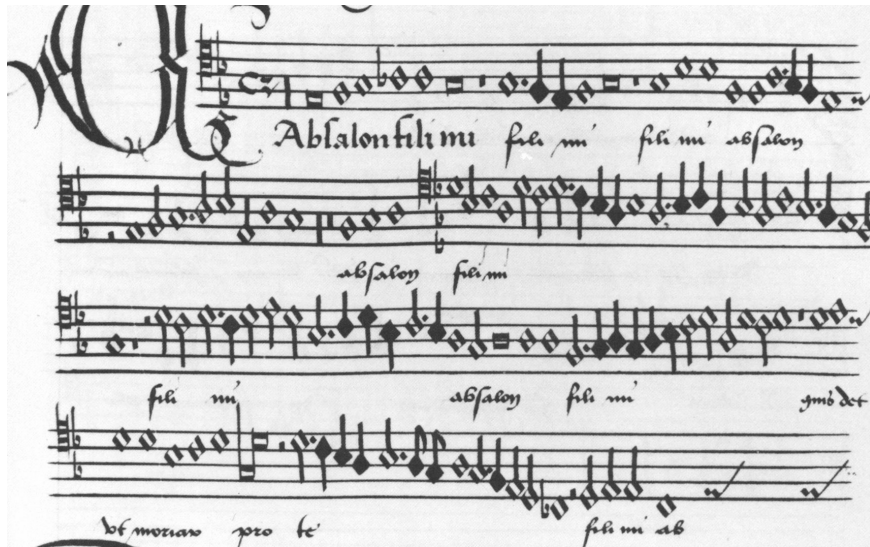 Absalon fili mi fili mi fili mi absalon
absalon fili mi
fili mi absalon fili mi quis det
vt moriar pro te fili mi ab